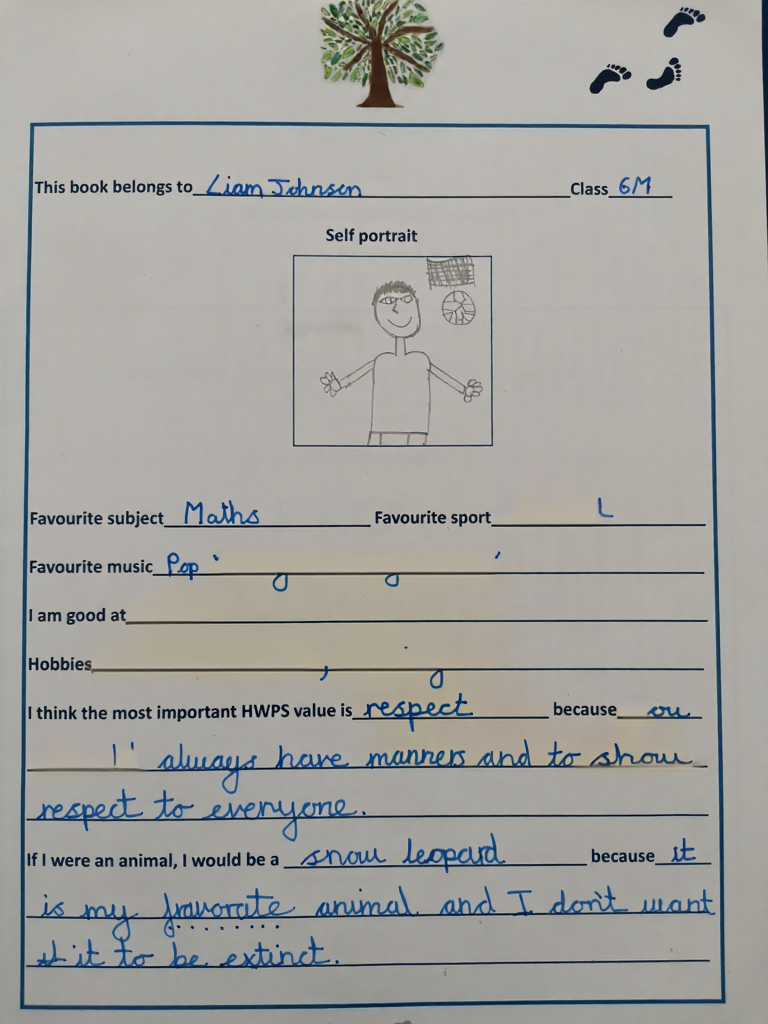 This book belongs to Liam Johnson Class 6M
Self portrait
Favourite subject Maths Favourite sport
Favourite music Pop
I am good at
Hobbies
I think the most important HWPS value is respect because
always have manners and to show
respect to everyone.
If I were an animal, I would be a snow leopard because it
is my fravorate animal and I don't want
it to be extinct.